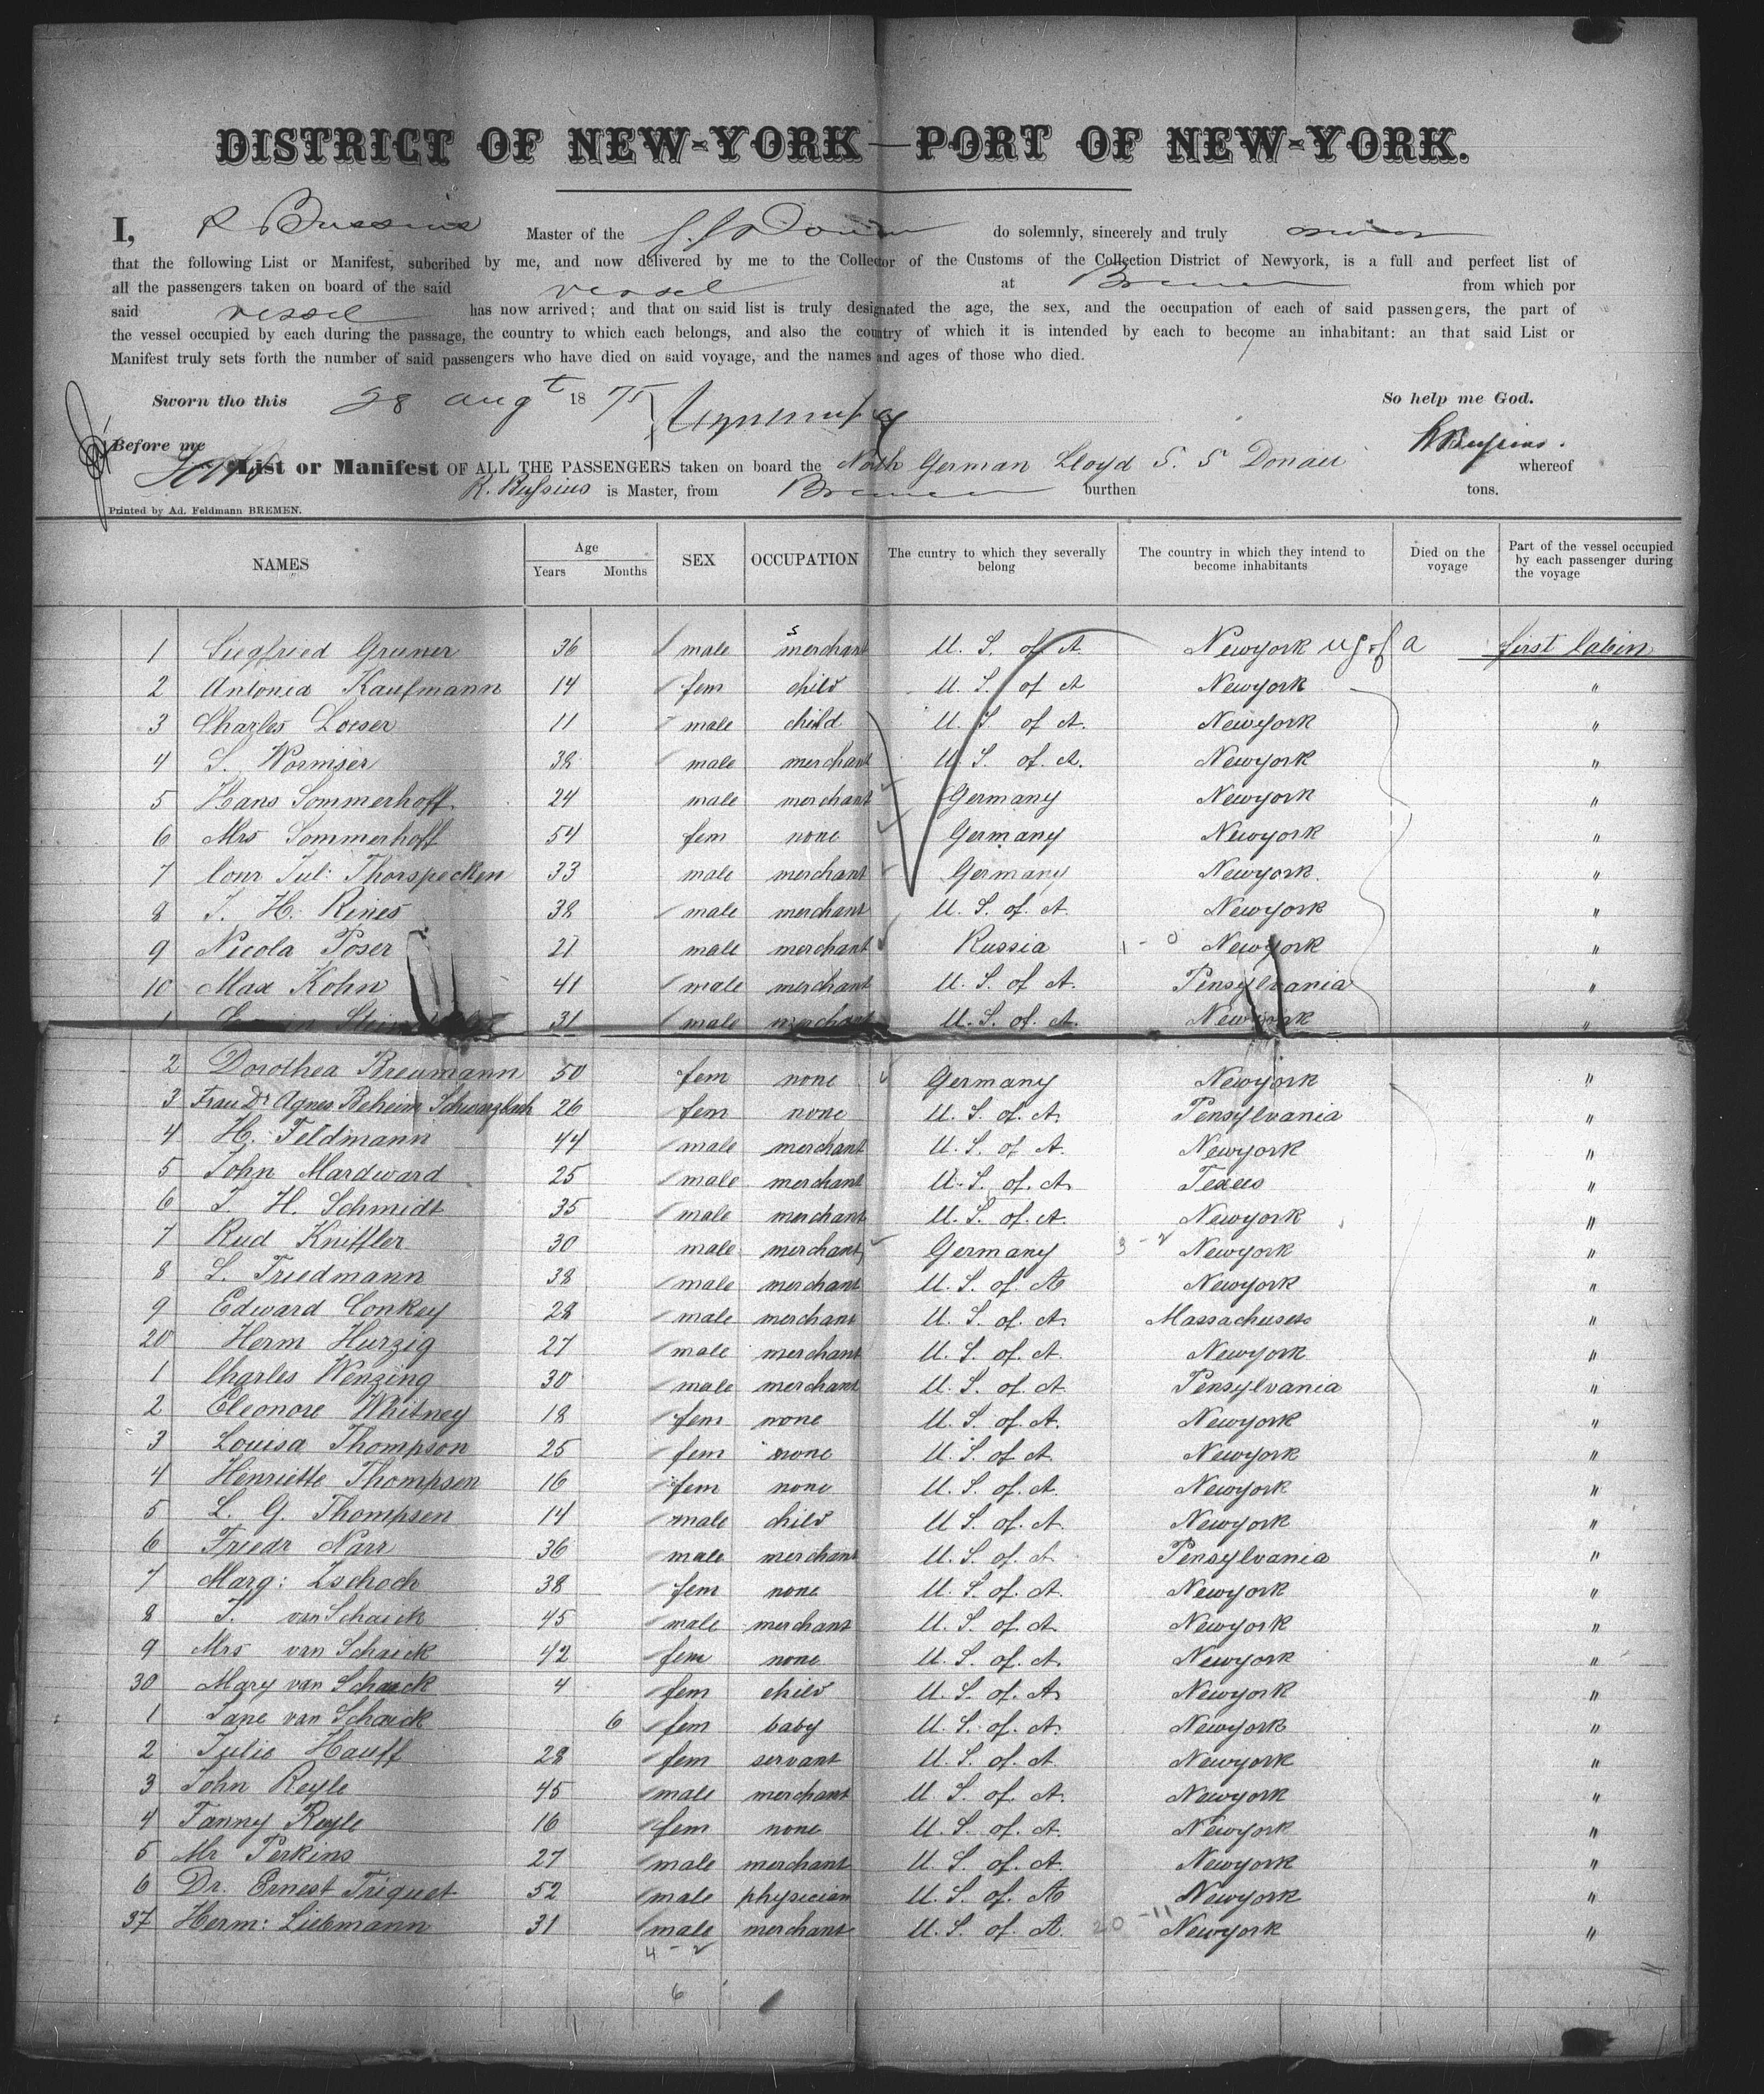 DISTRICT OF NEW-YORK—PORT OF NEW-YORK.
I, R Bussius Master of the S. S. Donau do solemnly, sincerely and truly swear
that the following List or Manifest, subcribed by me, and now delivered by me to the Collector of the Customs of the Collection District of Newyork, is a full and perfect list of
all the passengers taken on board of the said vessel at Bremen from which por
said vessel has now arrived; and that on said list is truly designated the age, the sex, and the occupation of each of said passengers, the part of
the vessel occupied by each during the passage, the country to which each belongs, and also the country of which it is intended by each to become an inhabitant: an that said List or
Manifest truly sets forth the number of said passengers who have died on said voyage, and the names and ages of those who died.
Sworn tho this 28 augt 1875 So help me God.
Before me R Bussius.
List or Manifest OF ALL THE PASSENGERS taken on board the North German Lloyd S. S Donau whereof
R. Bussius is Master, from Bremen burthen tons.
Printed by Ad. Feldmann BREMEN.
NAMES Age Years Months SEX OCCUPATION The cuntry to which they severally belong The country in which they intend to become inhabitants Died on the voyage Part of the vessel occupied by each passenger during the voyage
1 Siegfried Gruner 36 male merchant U. S. of A Newyork US of a first Cabin
2 Antonia Kaufmann 14 fem child U. S. of A Newyork "
3 Charles Loeser 11 male child U. S. of A. Newyork "
4 S. Wormser 38 male merchant U. S. of. A. Newyork "
5 Hans Sommerhoff 24 male merchant Germany Newyork "
6 Mrs Sommerhoff 54 fem none Germany Newyork "
7 Conr Jul: Thorspecken 33 male merchant Germany Newyork. "
8 J. H. Rines 38 male merchant U. S. of. A. Newyork "
9 Nicola Poser 21 male merchant Russia 1 - 0 Newyork "
10 Max Kohn 41 male merchant U. S. of A. Pensylvania "
1 31 male merchant U. S. of. A. Newyork "
2 Dorothea Breumann 50 fem none Germany Newyork "
3 Frau Dr Agnes Beheim Schwarzbach 26 fem none U. S. of. A. Pensylvania "
4 H. Feldmann 44 male merchant U. S. of A. Newyork "
5 John Mardward 25 male merchant U. S. of. A. Texas "
6 J. H. Schmidt 35 male merchant U. S. of. A. Newyork "
7 Rud Kniffler 30 male merchant Germany 3 - 2 Newyork "
8 L. Friedmann 38 male merchant U. S. of. A Newyork "
9 Edward Conkey 28 male merchant U. S. of. A. Massachusets "
20 Herm Hurzig 27 male merchant U. S. of. A. Newyork "
1 Charles Wenzing 30 male merchant U. S. of. A Pensylvania "
2 Eleonore Whitney 18 fem none U. S. of. A. Newyork "
3 Louisa Thompson 25 fem none U. S. of A. Newyork "
4 Henriette Thompsen 16 fem none U. S. of. A. Newyork "
5 L. G. Thompsen 14 male child U. S. of. A. Newyork "
6 Friedr Narr 36 male merchant U. S. of A Pensylvania "
7 Marg: Zschoch 38 fem none U. S. of. A Newyork "
8 J. van Schaick 45 male merchant U. S. of. A. Newyork "
9 Mrs van Schaick 42 fem none U. S. of. A. Newyork "
30 Mary van Schaick 4 fem child U. S. of. A. Newyork "
1 Jane van Schaick 6 fem baby U. S. of. A. Newyork "
2 Julie Hauff 28 fem servant U. S. of. A Newyork "
3 John Reyle 45 male merchant U. S. of. A. Newyork "
4 Fanny Reyle 16 fem none U. S. of. A. Newyork "
5 Mr Perkins 27 male merchant U. S. of. A. Newyork "
6 Dr. Ernest Triquet 52 male physician U. S. of. A Newyork "
37 Herm: Liebmann 31 male merchant U. S. of. A. 20 - 11 Newyork "
4 - 2
6